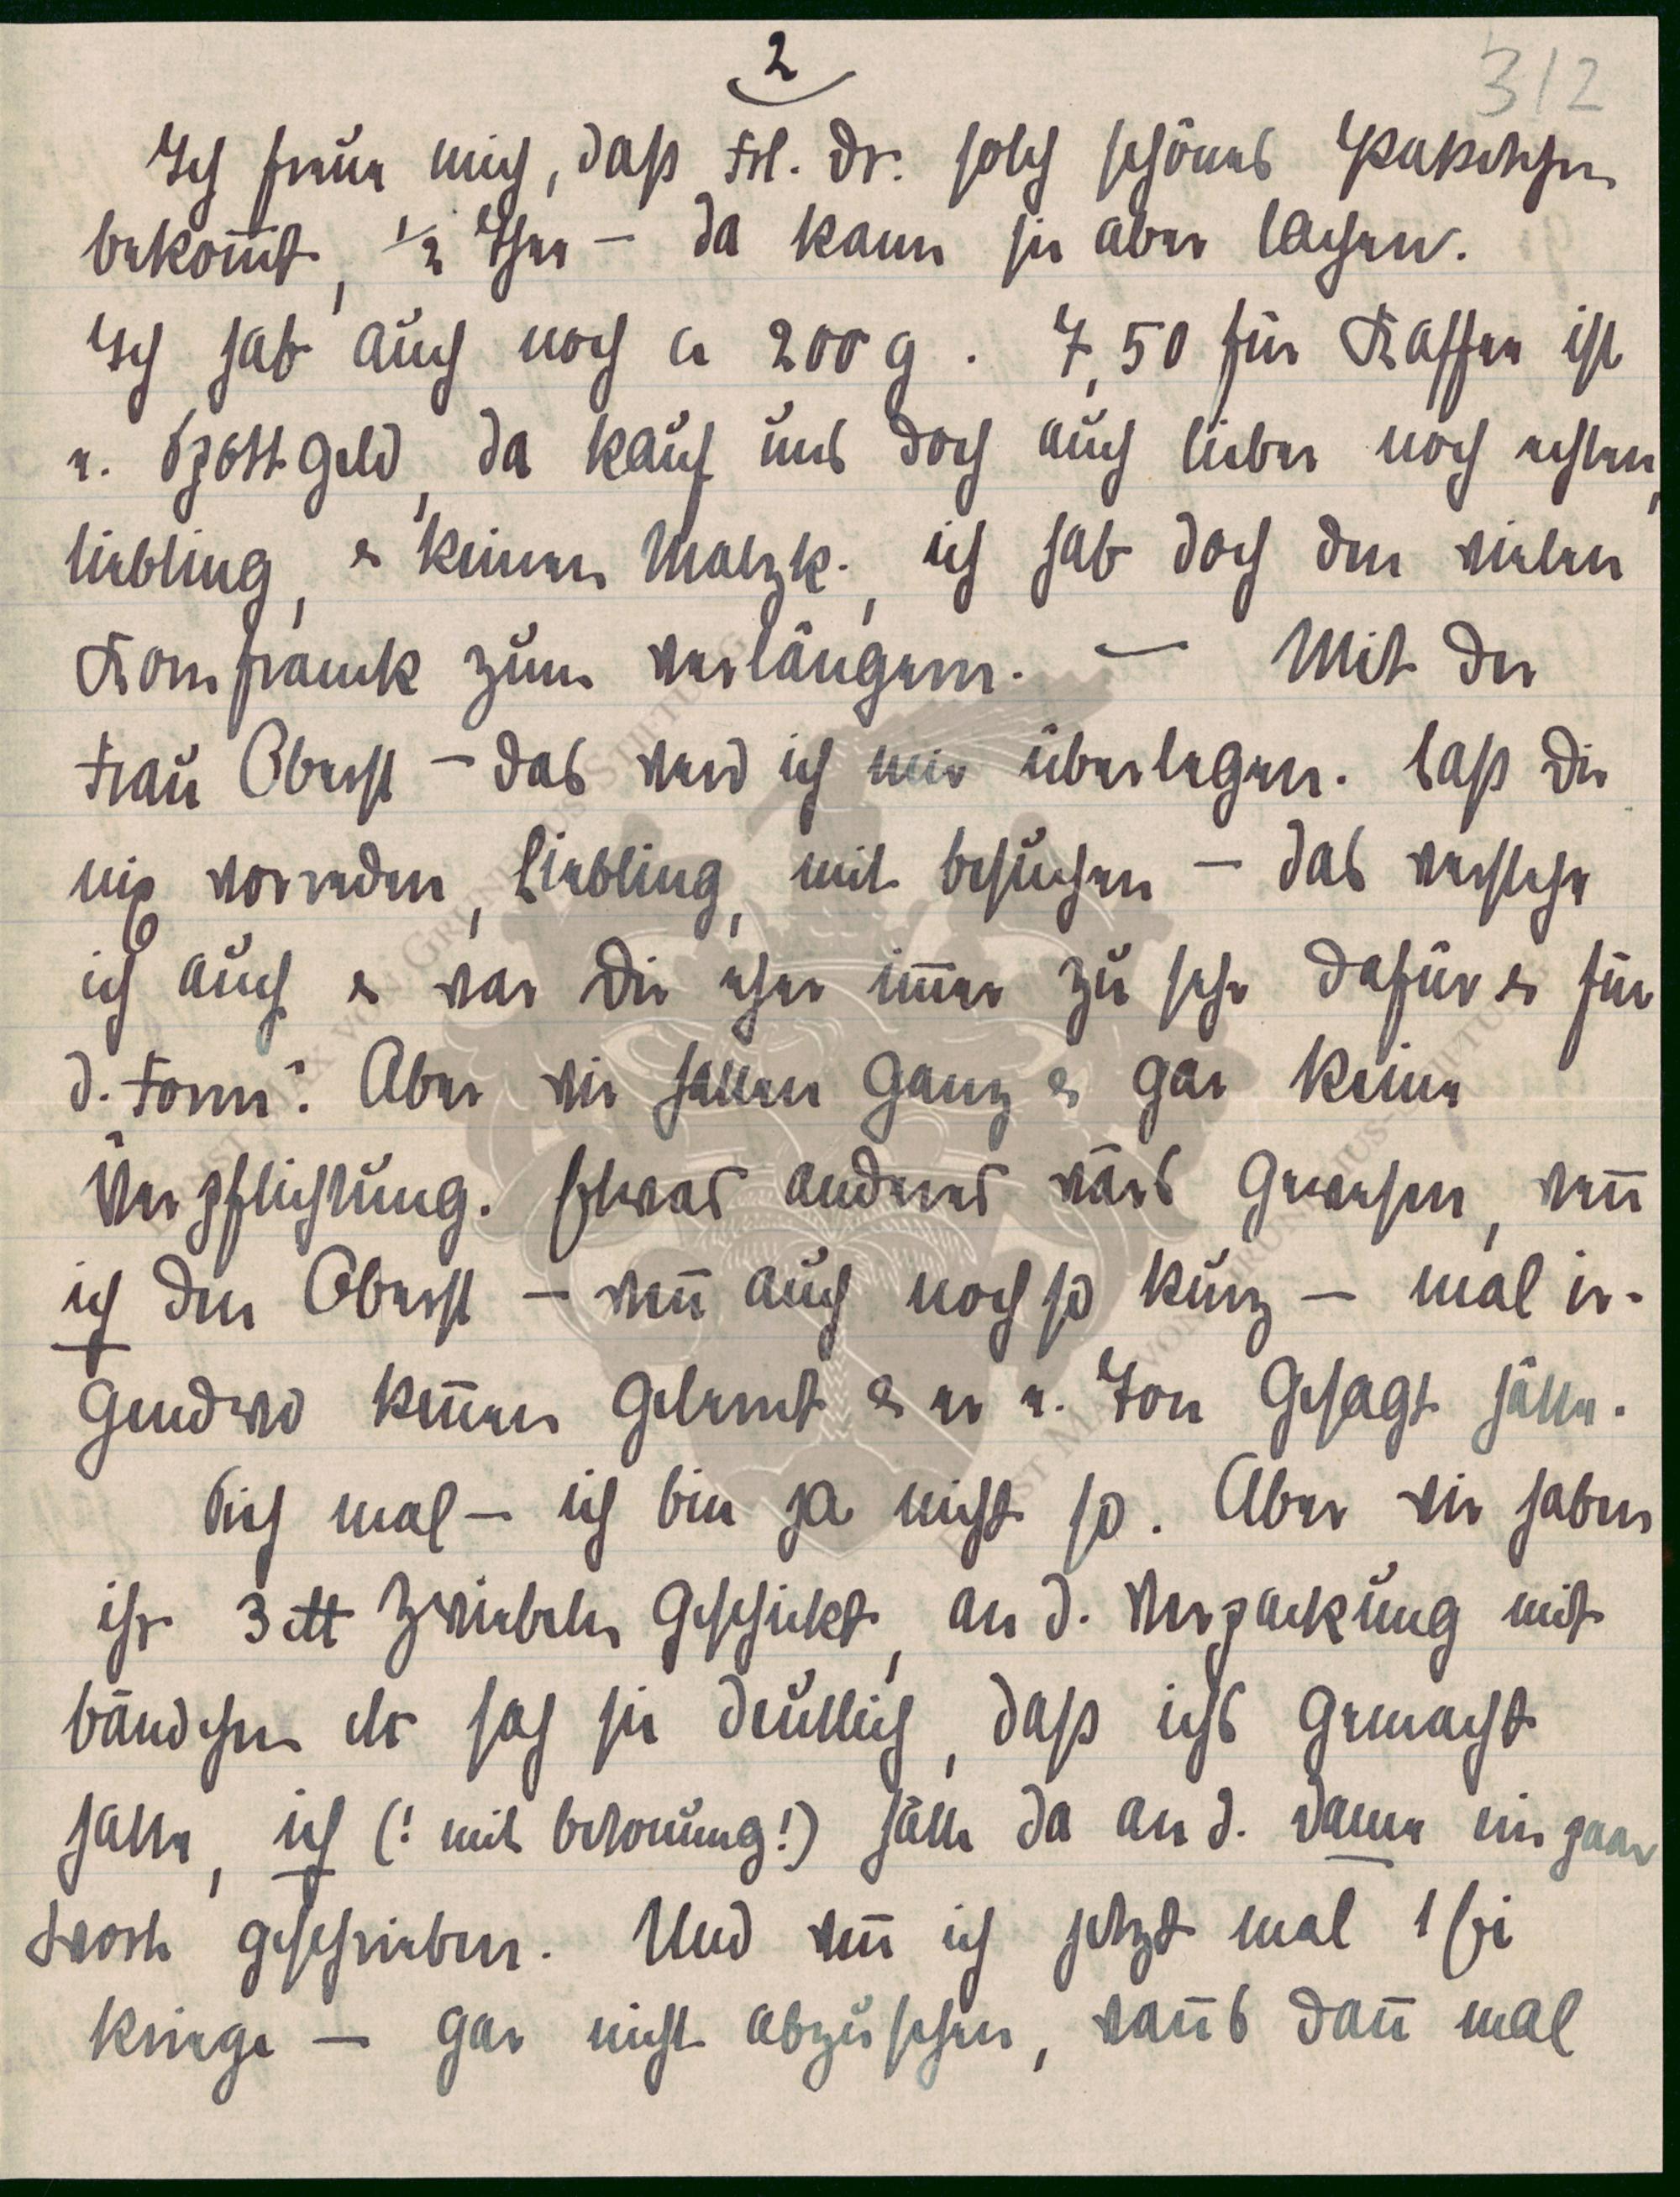 2
312
Ich freue mich, daß Frl. Dr. solch schönes Paketchen
bekom̅t, 1/2 Thee – da kann sie aber lachen.
Ich hab auch noch ca 200 g. 7,50 für Kaffee ist
e. Spottgeld, da kauf uns doch auch lieber noch echten,
Liebling, & keinen Malzk., ich hab doch den vielen
Kornfranck zum verlängern. — Mit der
Frau Oberst – das werd ich mir überlegen. Laß Dir
nix vorreden, Liebling, mit besuchen – das verstehe
ich auch & war Dir eher im̅er zu sehr dafür & für
d. Form". Aber wir hatten ganz & gar keine
Verpflichtung. Etwas anderes wärs gewesen, wen̅
ich den Oberst – wen̅ auch noch so kurz – mal ir-
gendwo ken̅en gelernt & er e. Ton gesagt hätte.
Sieh mal – ich bin ja nicht so. Aber wir haben
ihr 3 ℔ Zwiebeln geschickt, an d. Verpackung mit
Bändchen etc sah sie deutlich, daß ichs gemacht
hatte, ich (! mit Betonung!) hätte da an d. Dame ein paar
Worte geschrieben. Und wen̅ ich jetzt mal 1 Ei
kriege – gar nicht abzusehen, wan̅s dan̅ mal
ERNST MAX VON GRUNELIUS-STIFTUNG
ERNST MAX VON GRUNELIUS-STIFTUNG